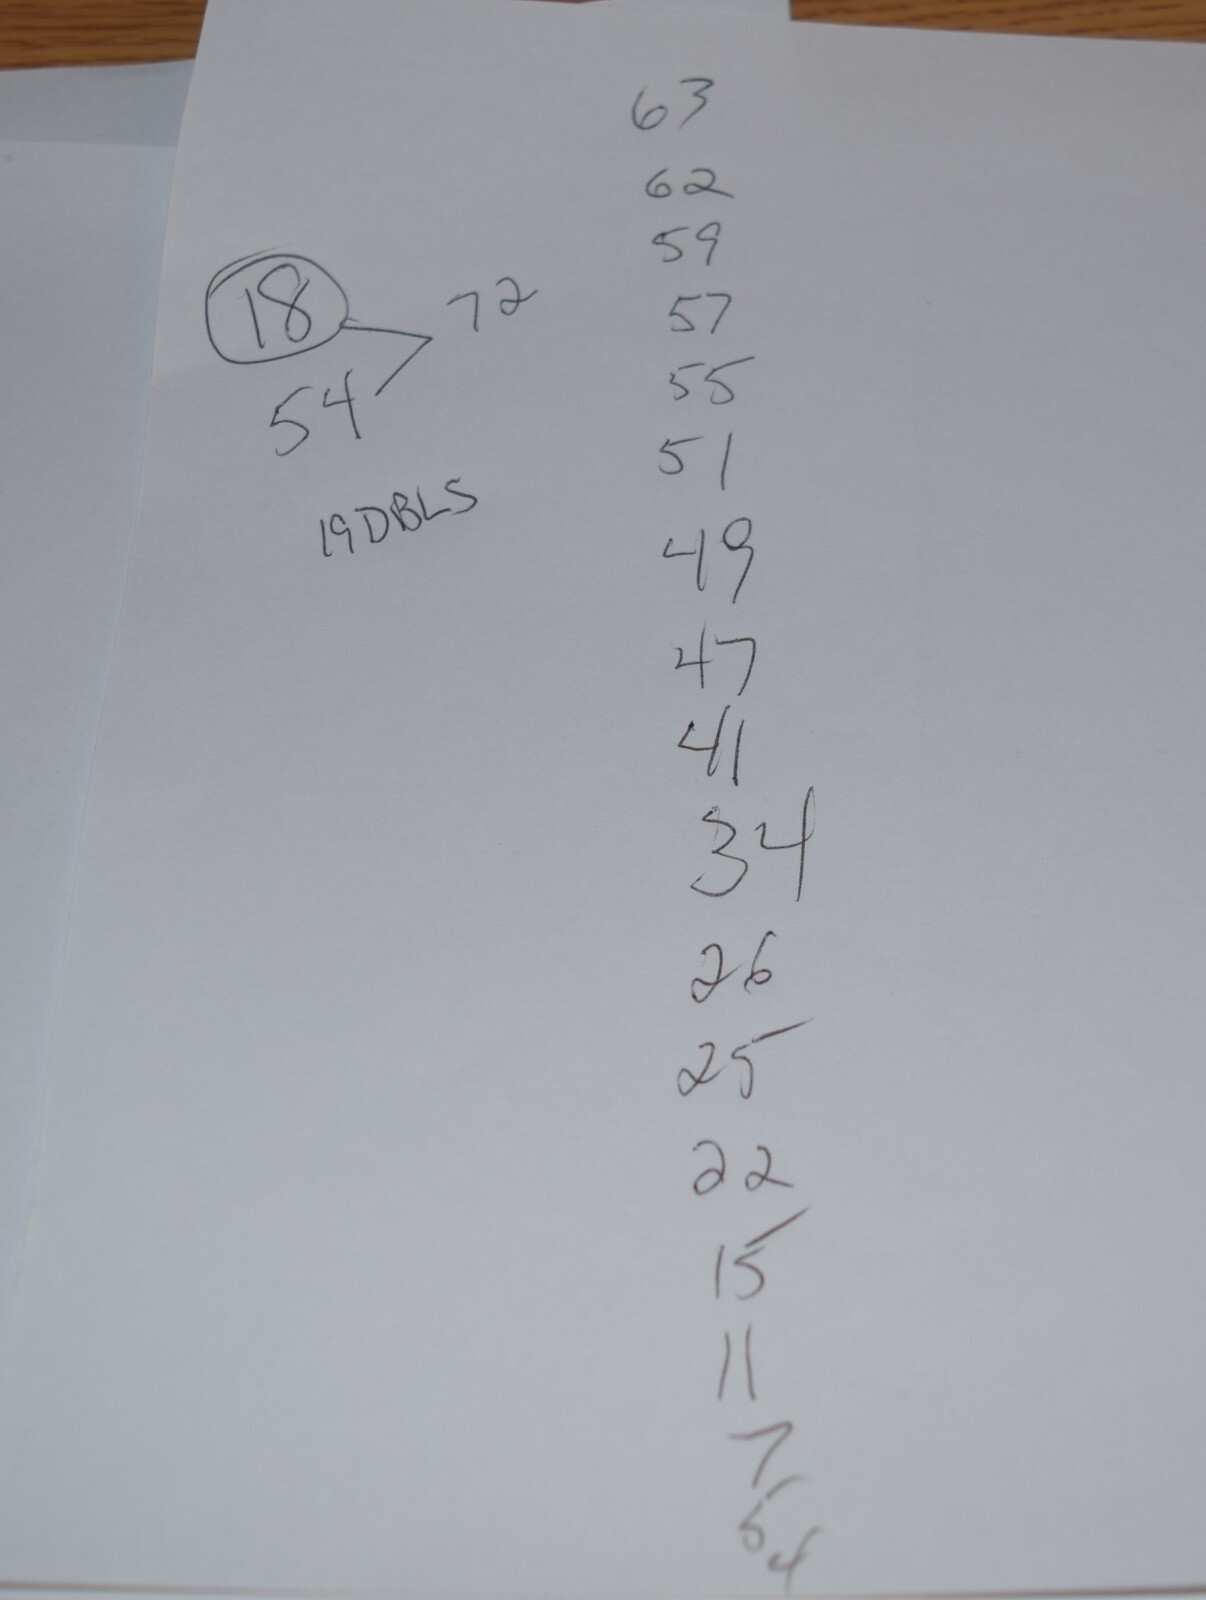 18
54
72
19 DBLS
63
62
59
57
55
51
49
47
41
34
26
25
22
15
11
7
5
4